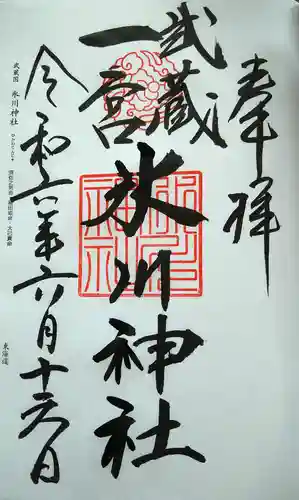 奉拝
武蔵
一宮
氷川神社
令和六年六月十六日
武蔵国 氷川神社
東海道